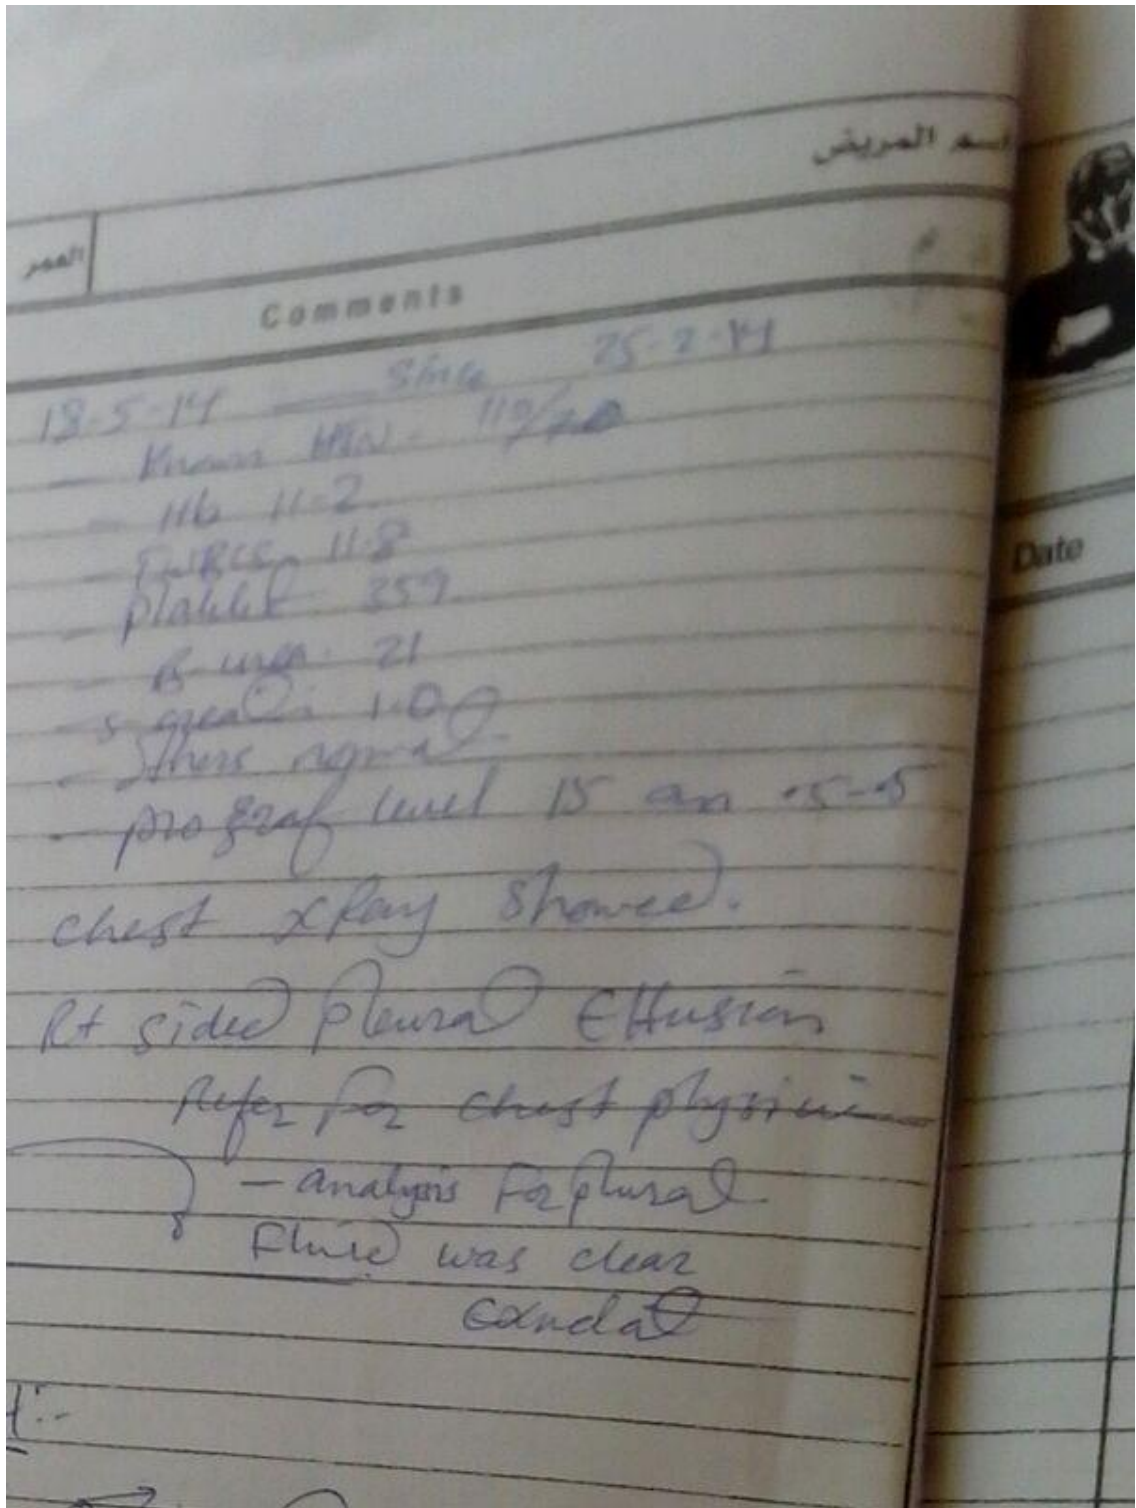 اسم المريض
العمر
Comments
18-5-14 — Since 25-2-14
- Known HTN - 110/70
- Hb 11-2
- TWBCs 11-8
- platelet 359
- B-urea 21
- s creatin 1-0
- Others normal
- prograf level 15 on 5-5
chest xRay Showed.
Rt sided pleural Effusion
Refer for chest physician
- analysis For plural
Fluid was clear
Exudat
Date